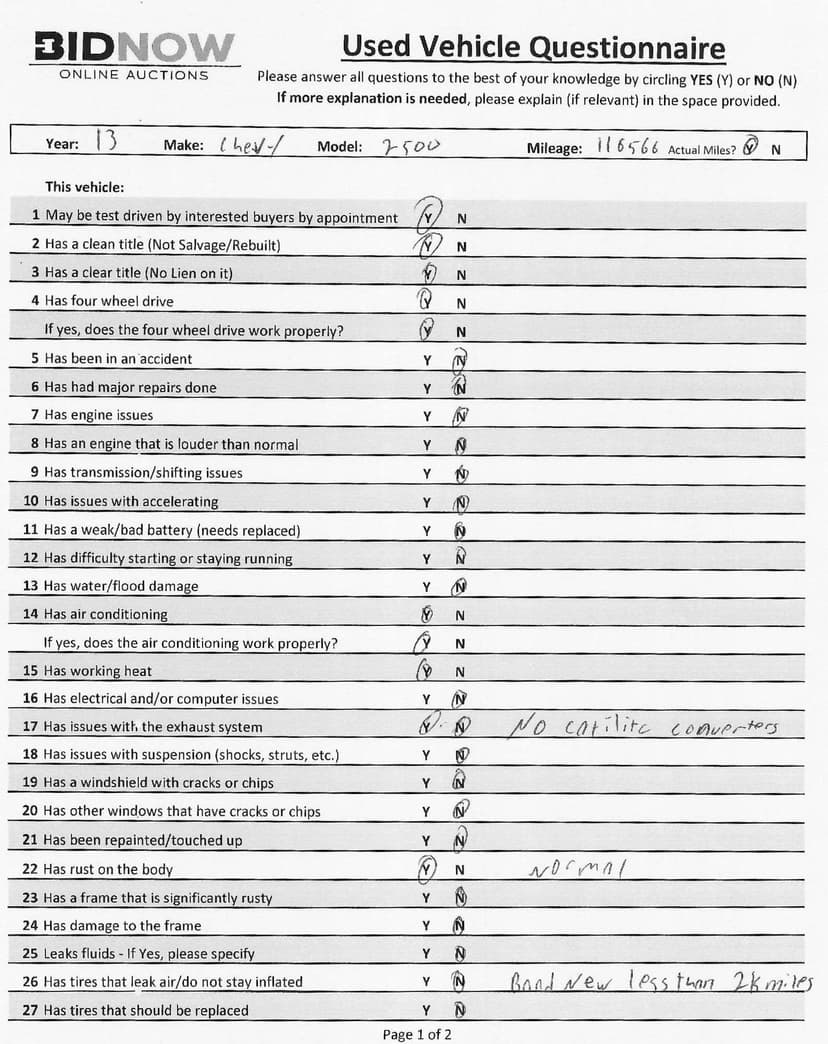 BIDNOW
ONLINE AUCTIONS
Used Vehicle Questionnaire
Please answer all questions to the best of your knowledge by circling YES (Y) or NO (N)
If more explanation is needed, please explain (if relevant) in the space provided.
Year: 13 Make: Chevy Model: 2500 Mileage: 116566 Actual Miles? Y N
This vehicle:
1 May be test driven by interested buyers by appointment Y N
2 Has a clean title (Not Salvage/Rebuilt) Y N
3 Has a clear title (No Lien on it) Y N
4 Has four wheel drive Y N
If yes, does the four wheel drive work properly? Y N
5 Has been in an accident Y N
6 Has had major repairs done Y N
7 Has engine issues Y N
8 Has an engine that is louder than normal Y N
9 Has transmission/shifting issues Y N
10 Has issues with accelerating Y N
11 Has a weak/bad battery (needs replaced) Y N
12 Has difficulty starting or staying running Y N
13 Has water/flood damage Y N
14 Has air conditioning Y N
If yes, does the air conditioning work properly? Y N
15 Has working heat Y N
16 Has electrical and/or computer issues Y N
17 Has issues with the exhaust system Y N NO catilitc converters
18 Has issues with suspension (shocks, struts, etc.) Y N
19 Has a windshield with cracks or chips Y N
20 Has other windows that have cracks or chips Y N
21 Has been repainted/touched up Y N
22 Has rust on the body Y N Normal
23 Has a frame that is significantly rusty Y N
24 Has damage to the frame Y N
25 Leaks fluids - If Yes, please specify Y N
26 Has tires that leak air/do not stay inflated Y N Band New less than 2k miles
27 Has tires that should be replaced Y N
Page 1 of 2